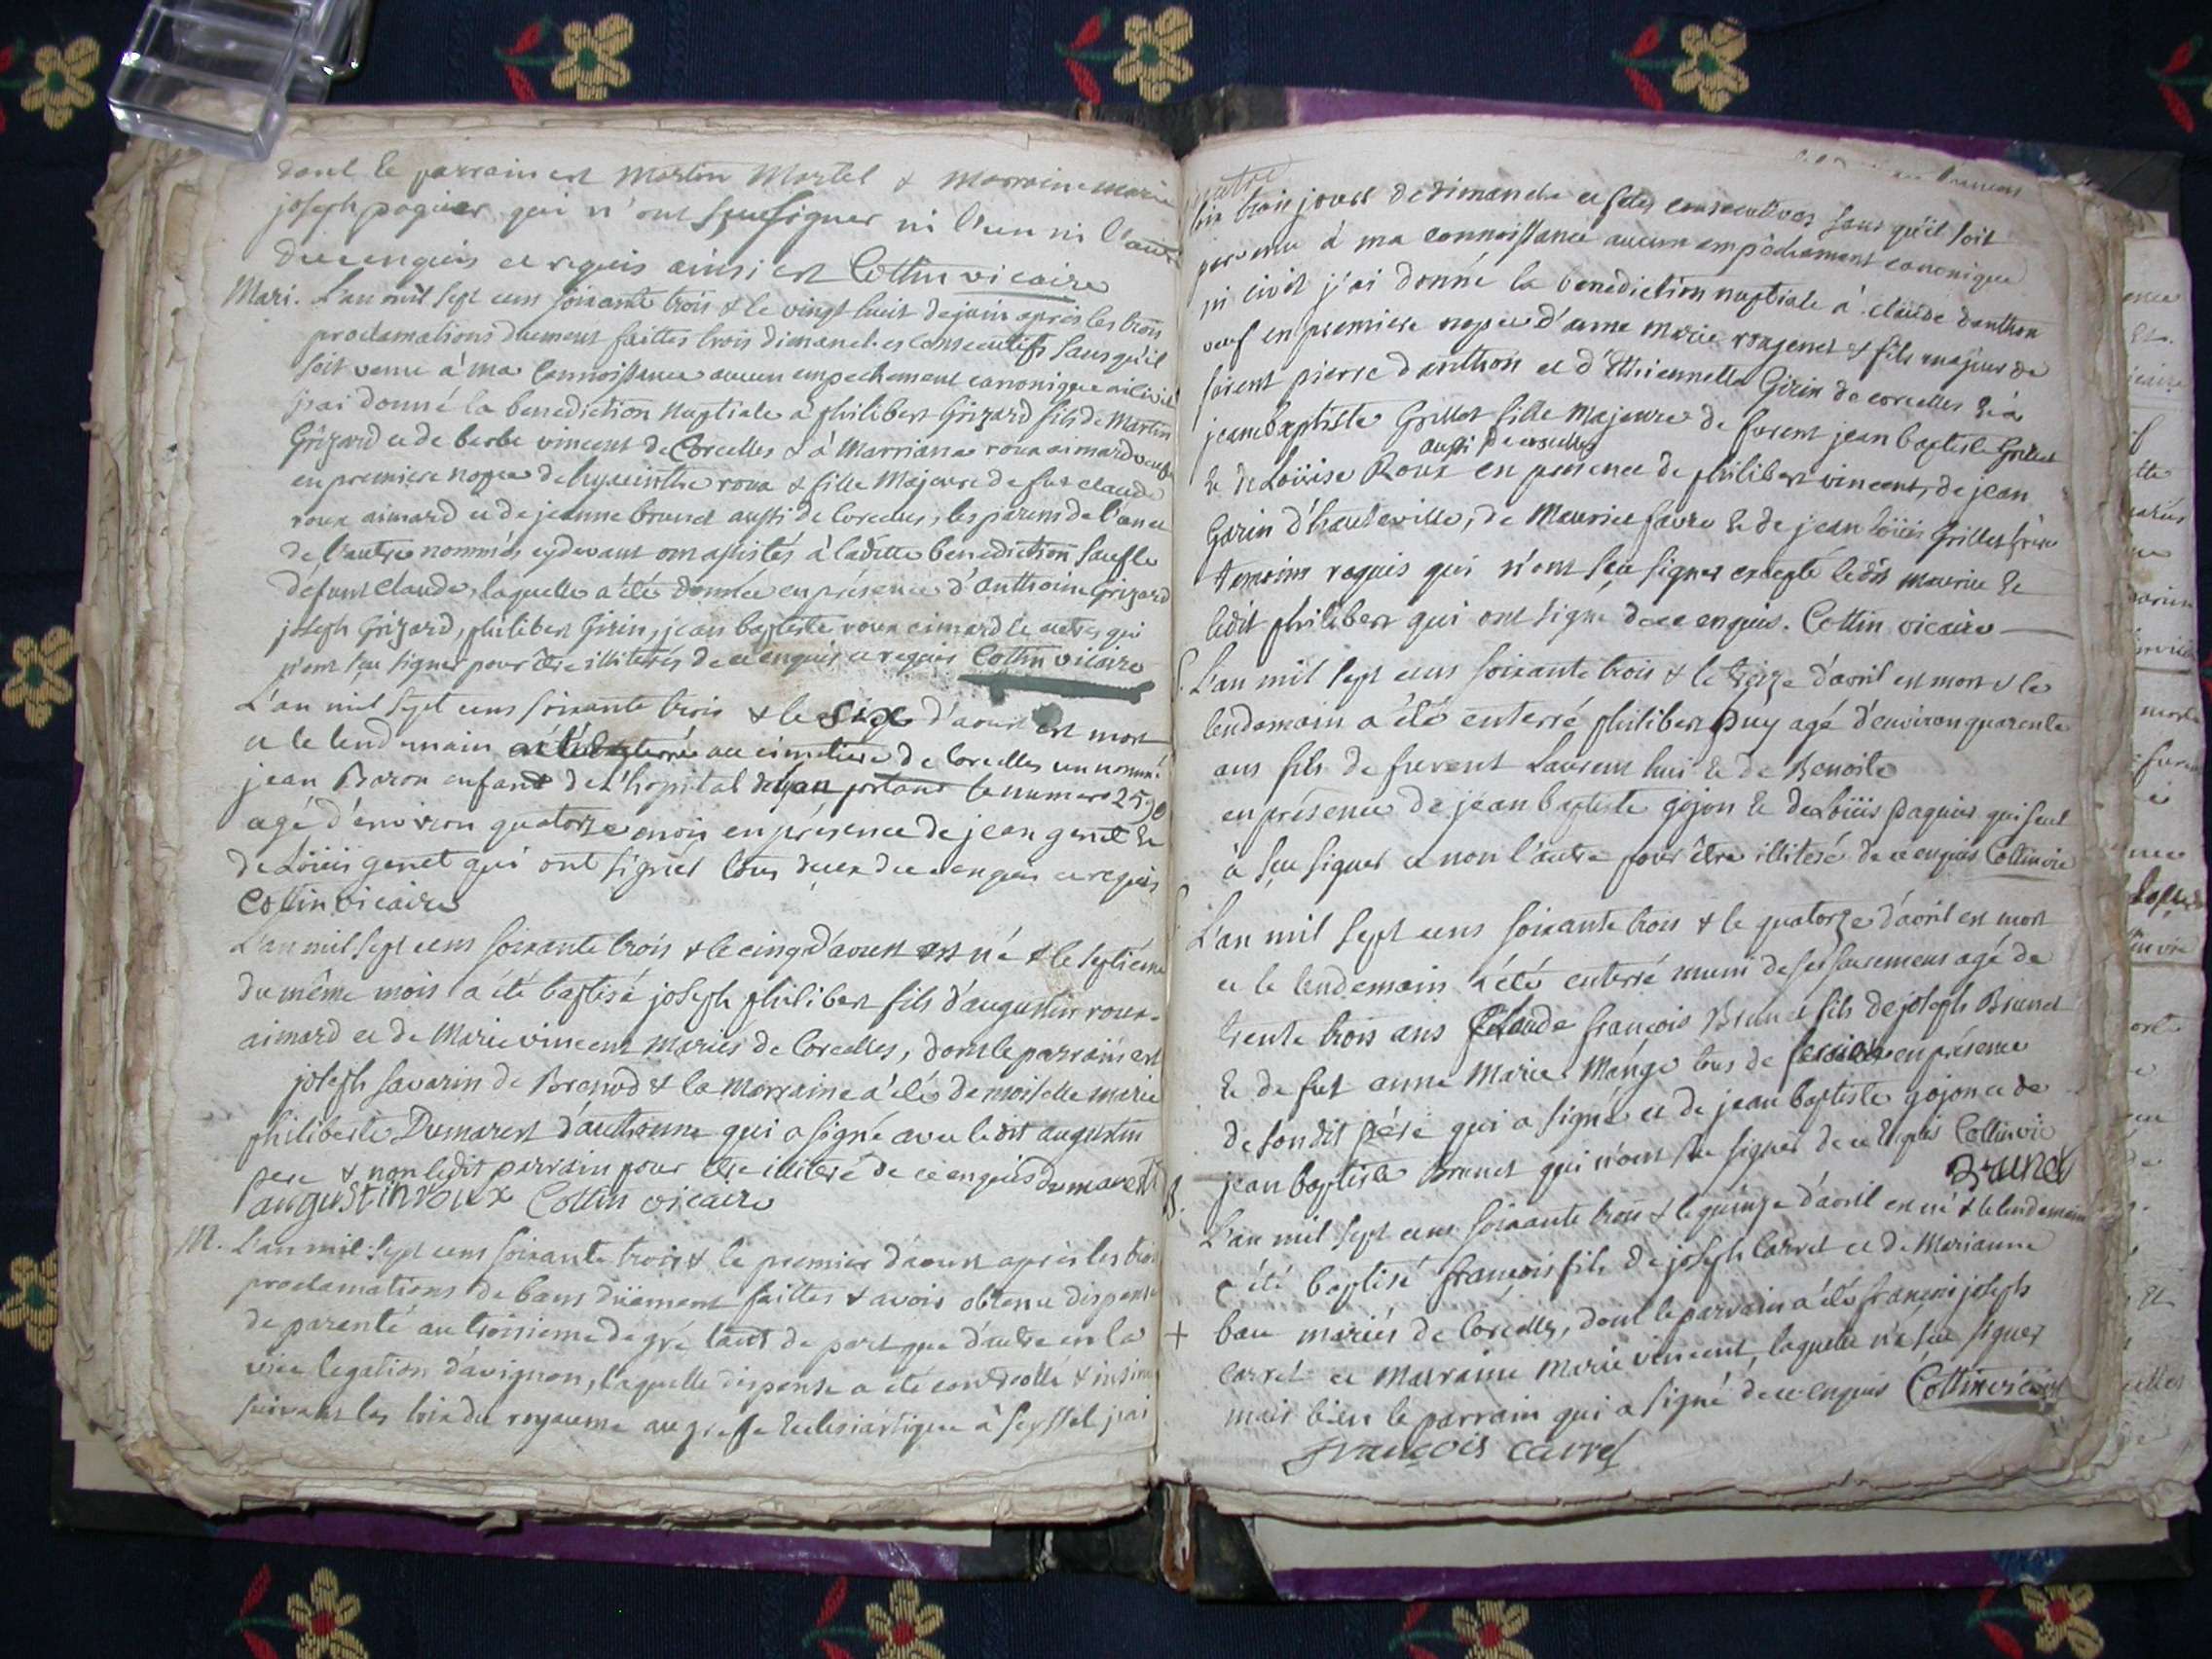 dont le parrain est Martin Martel & Marraine marie
joseph paquier qui n'ont sçeu signer ni l'un ni l'autre
de ce enquis et requis ainsi est Cottin vicaire
Mari. L'an mil sept cens soixante trois & le vingt huit de juin après les trois
proclamations duement faittes trois dimanches consecutifs sans qu'il
soit venu à ma connoissance aucun empechement canonique ni civil
j'ai donné la benediction nuptiale à philibert Grizard fils de Martin
Grizard et de berbe vincent de Corcelles & à Marriana roux aimard veuve
en premiere nopce de hyacinthe roux & fille Majeure de fut claude
roux aimard et de jeanne brunet aussi de Corcelles, les parens de l'un et
de l'autre nommés cydevant ont assistés à laditte benediction sauf le
défunt Claude, laquelle a été donnée en présence d'anthoine Grizard
joseph Grizard, philibert Girin, jean baptiste roux aimard et autres qui
n'ont sçu signer pour être illiterés de ce enquis et requis Cottin vicaire
L'an mil sept cens soixante trois & le six d'aoust est mort
et le lendemain a été enterré au cimetiere de Corcelles un nommé
jean Baron enfant de L'hopital de lyon portant le numero 2590
agé d'environ quatorze mois en présence de jean genet &
de Loüis genet qui ont signés tous deux de ce enquis et requis
Cottin vicaire
L'an mil sept cens soixante trois & le cinq d'aoust est né & le septiéme
du même mois a été baptisé joseph philibert fils d'augustin roux-
aimard et de Marie vincent mariés de Corcelles, dont le parrain est
joseph savarin de Brenod & la Marraine a été demoiselle marie
philiberte Dumarest d'authonne qui a signé avec ledit augustin
pere & non ledit parrain pour être illiteré de ce enquis dumarest
augustin roux Cottin vicaire
M. L'an mil sept cens soixante trois & le premier d'aoust après les trois
proclamations de bans düement faittes & avoir obtenu dispense
de parenté au troisieme degré tant de part que d'autre en la
vice legation d'avignon, laquelle dispense a été controllé & insinué
suivant les loix du royaume au greffe Ecclesiastique à Seyssel j'ai
trois jours de dimanche et fetes consecutives sans qu'il soit
parvenu à ma connoissance aucun empêchement canonique
ni civil j'ai donné la benediction nuptiale à claude danthon
veuf en premiere nopce d'anne marie rougemet & fils majeur de
furent pierre danthon et d'Ethiennette Girin de corcelles & à
jeane baptiste Grillet fille Majeure de furent jean baptiste Grillet
aussi de corcelles
& de Loüise Roux en presence de philibert vincent, de jean
Garin d'hauteville, de Maurice favre & de jean loüis Grillet frère
temoins requis qui n'ont sçu signer excepté ledit maurice &
ledit philibert qui ont signé de ce enquis. Cottin vicaire
L'an mil sept cens soixante trois & le treize d'avril est mort & le
lendemain a été enterré philibert puy agé d'environ quarente
ans fils de furent Laurent hui & de Benoite
en présence de jean baptiste gojon & de Loüis paquier qui seul
à sçu signer et non l'autre pour être illiteré de ce enquis Cottin vic
L'an mil sept cens soixante trois & le quatorze d'avril est mort
et le lendemain a été enterré muni de ses sacremens agé de
trente trois ans Claude françois Brunet fils de joseph Brunet
& de fut anne Marie Mange tous de en présence
de son dit père qui a signé et de jean baptiste gojon et de
jean baptiste Brunet qui n'ont sçu signer de ce enquis Cottin vic
Brunet
B. L'an mil sept cens soixante trois & le quinze d'avril est né & le lendemain
a été baptisé françois fils de joseph Carret et de Marianne
+ bau mariés de Corcelles, dont le parrain a été françois joseph
carret et Marraine Marie vincent, laquelle n'a sçu signer
mais bien le parrain qui a signé de ce enquis Cottin vicaire
François carret